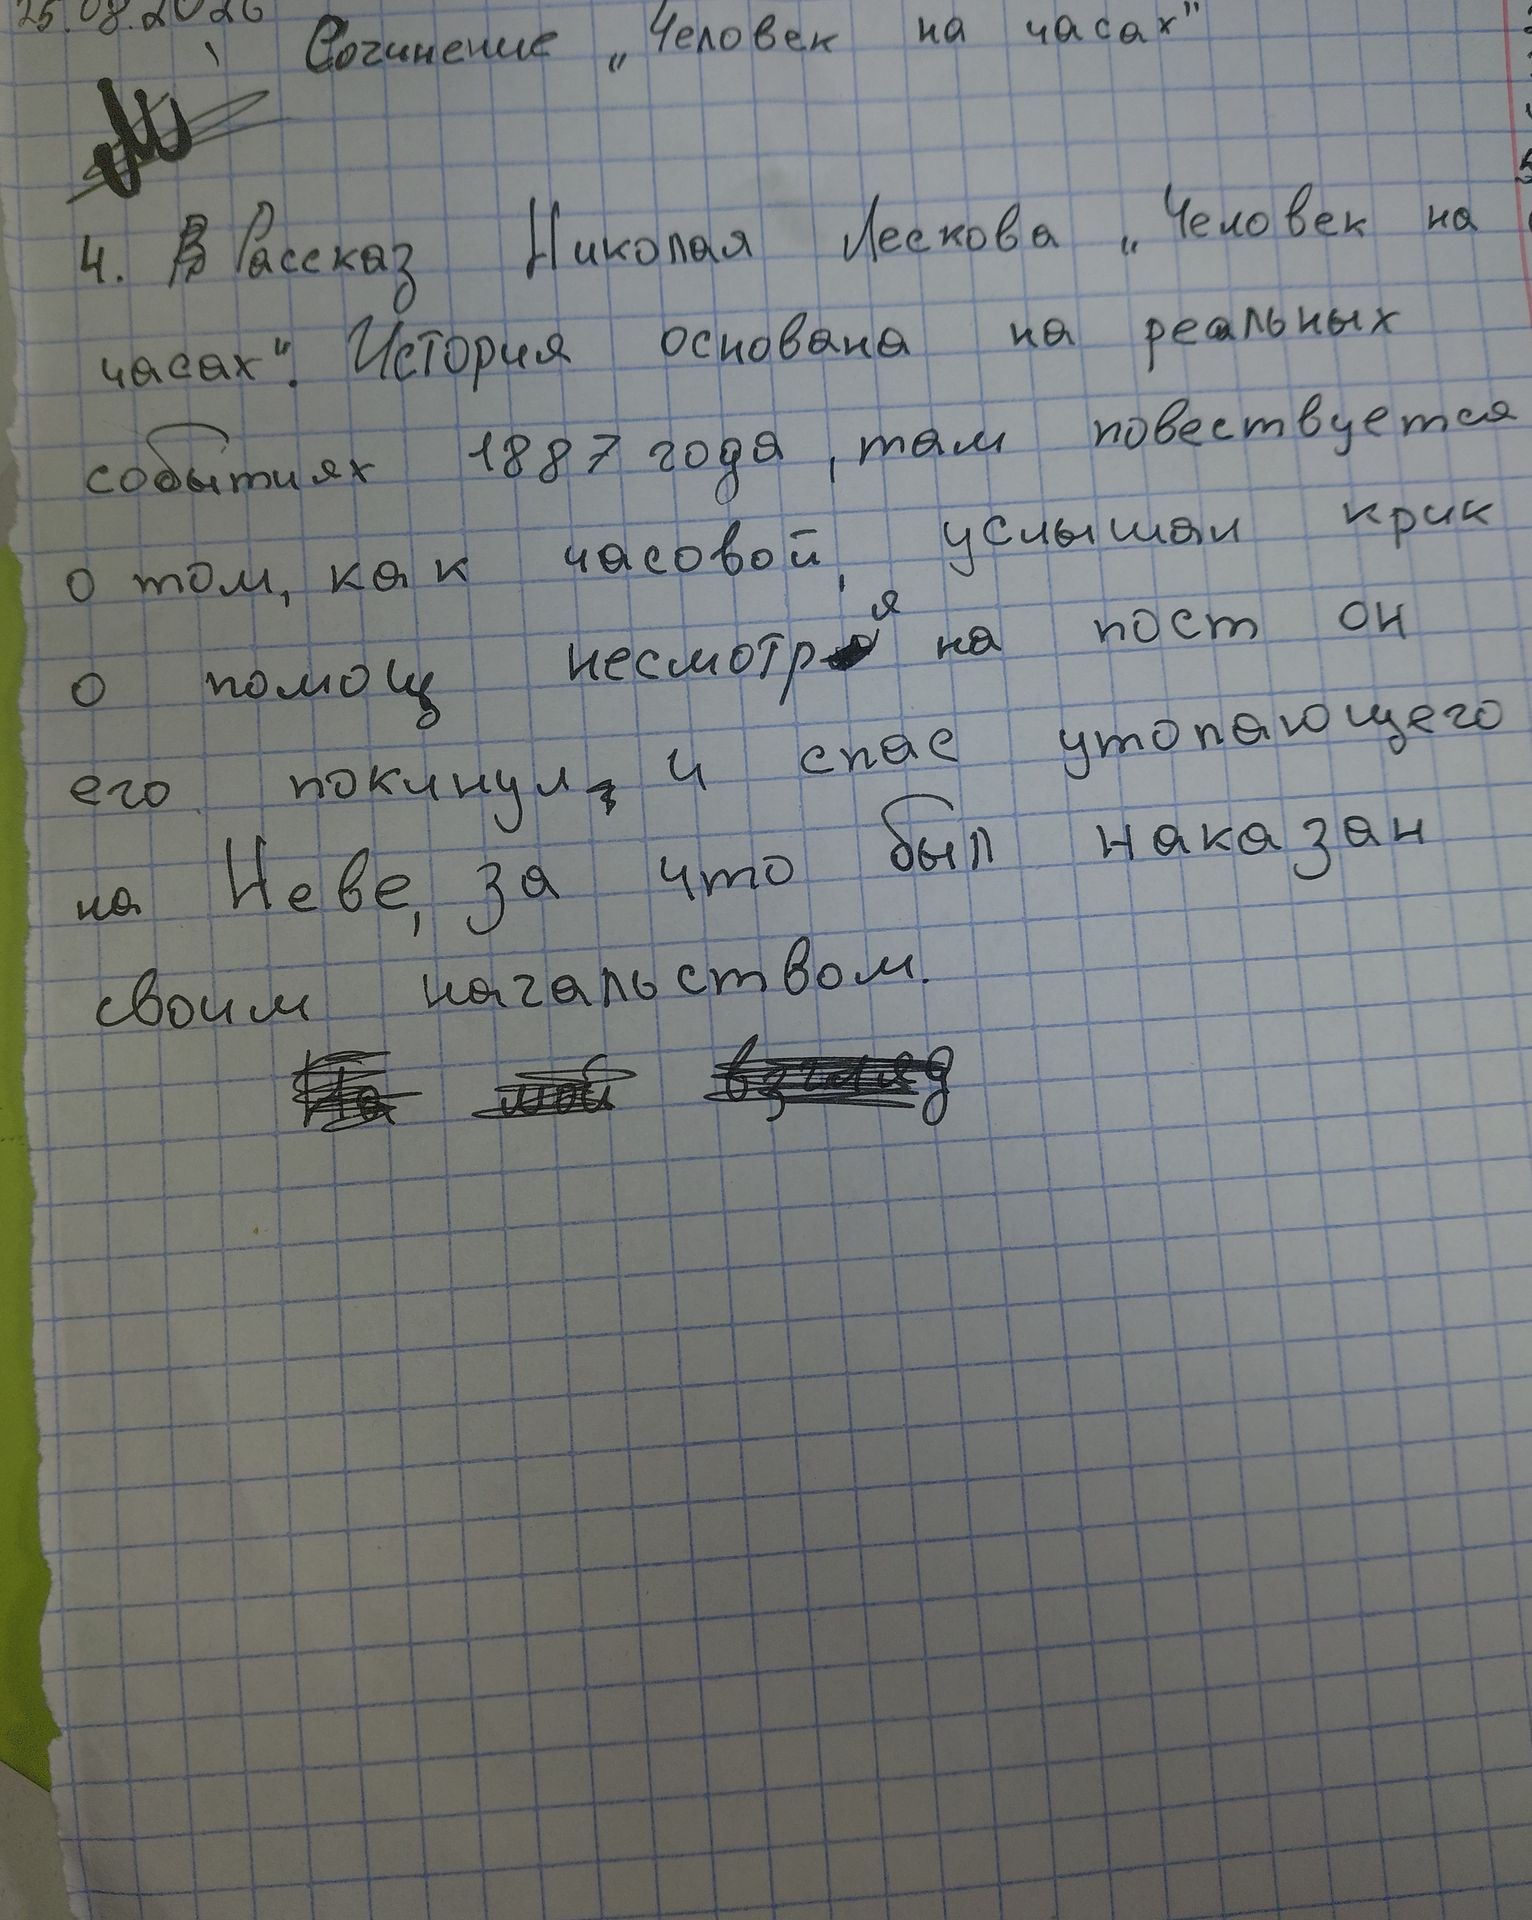 25.08.2026
Сочинение „Человек на часах"
4. Рассказ Николая Лескова „Человек на
часах". История основана на реальных
событиях 1887 года, там повествуется
о том, как часовой, услышал крик
о помощ несмотря на пост он
его покинул, и спас утопающего
на Неве, за что был наказан
своим начальством.
На мой взгляд